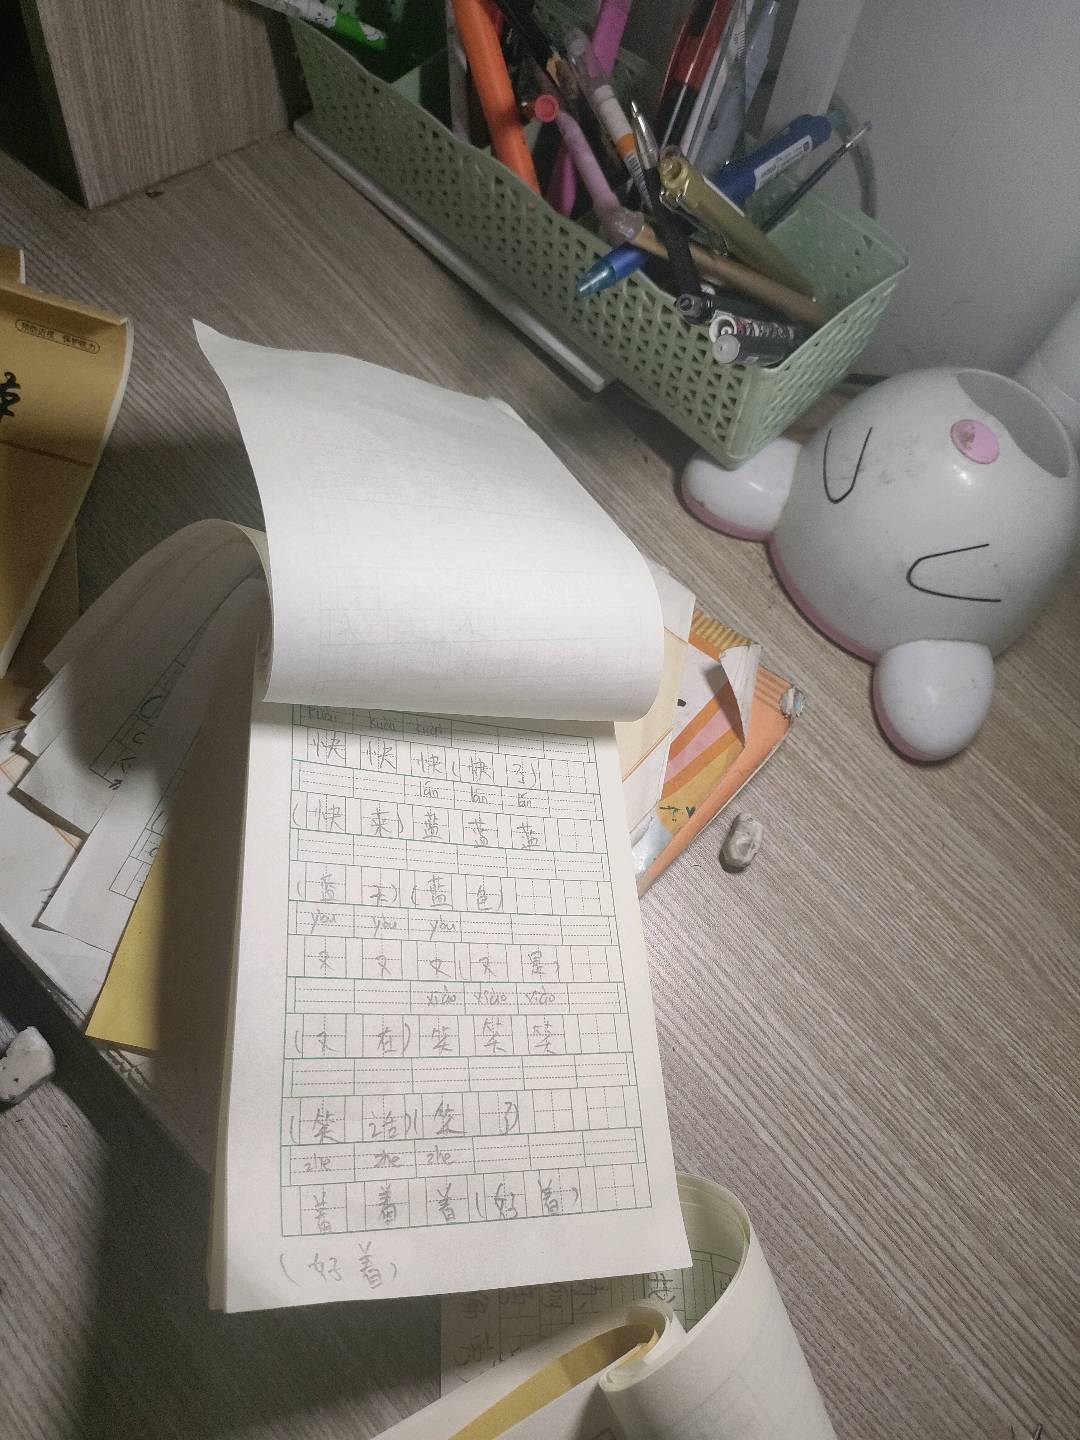 预防近视 保护视力
kuài kuài kuài
快 快 快(快 乐)
lán lán lán
(快 来)蓝 蓝 蓝
(蓝 天)(蓝 色)
yòu yòu yòu
又 又 又(又 是)
xiào xiào xiào
(又 在)笑 笑 笑
(笑 话)(笑 了)
zhe zhe zhe
着 着 着(好 着)
(好 着)